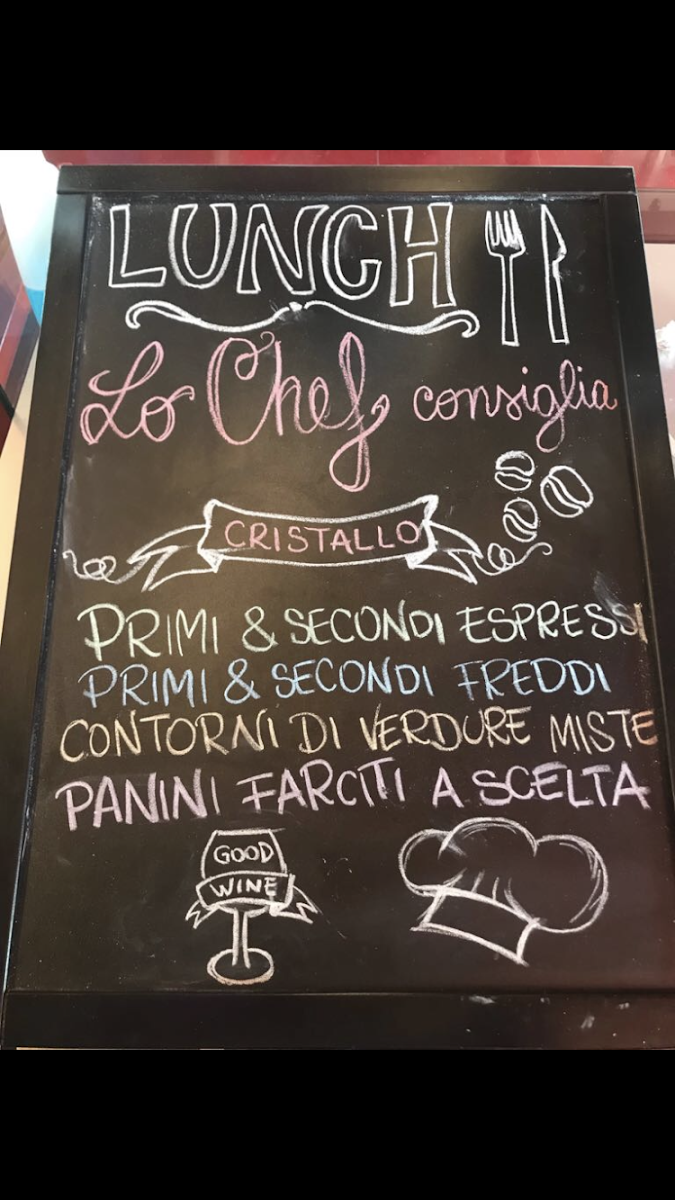 LUNCH
Lo Chef consiglia
CRISTALLO
PRIMI & SECONDI ESPRESSI
PRIMI & SECONDI FREDDI
CONTORNI DI VERDURE MISTE
PANINI FARCITI A SCELTA
GOOD
WINE